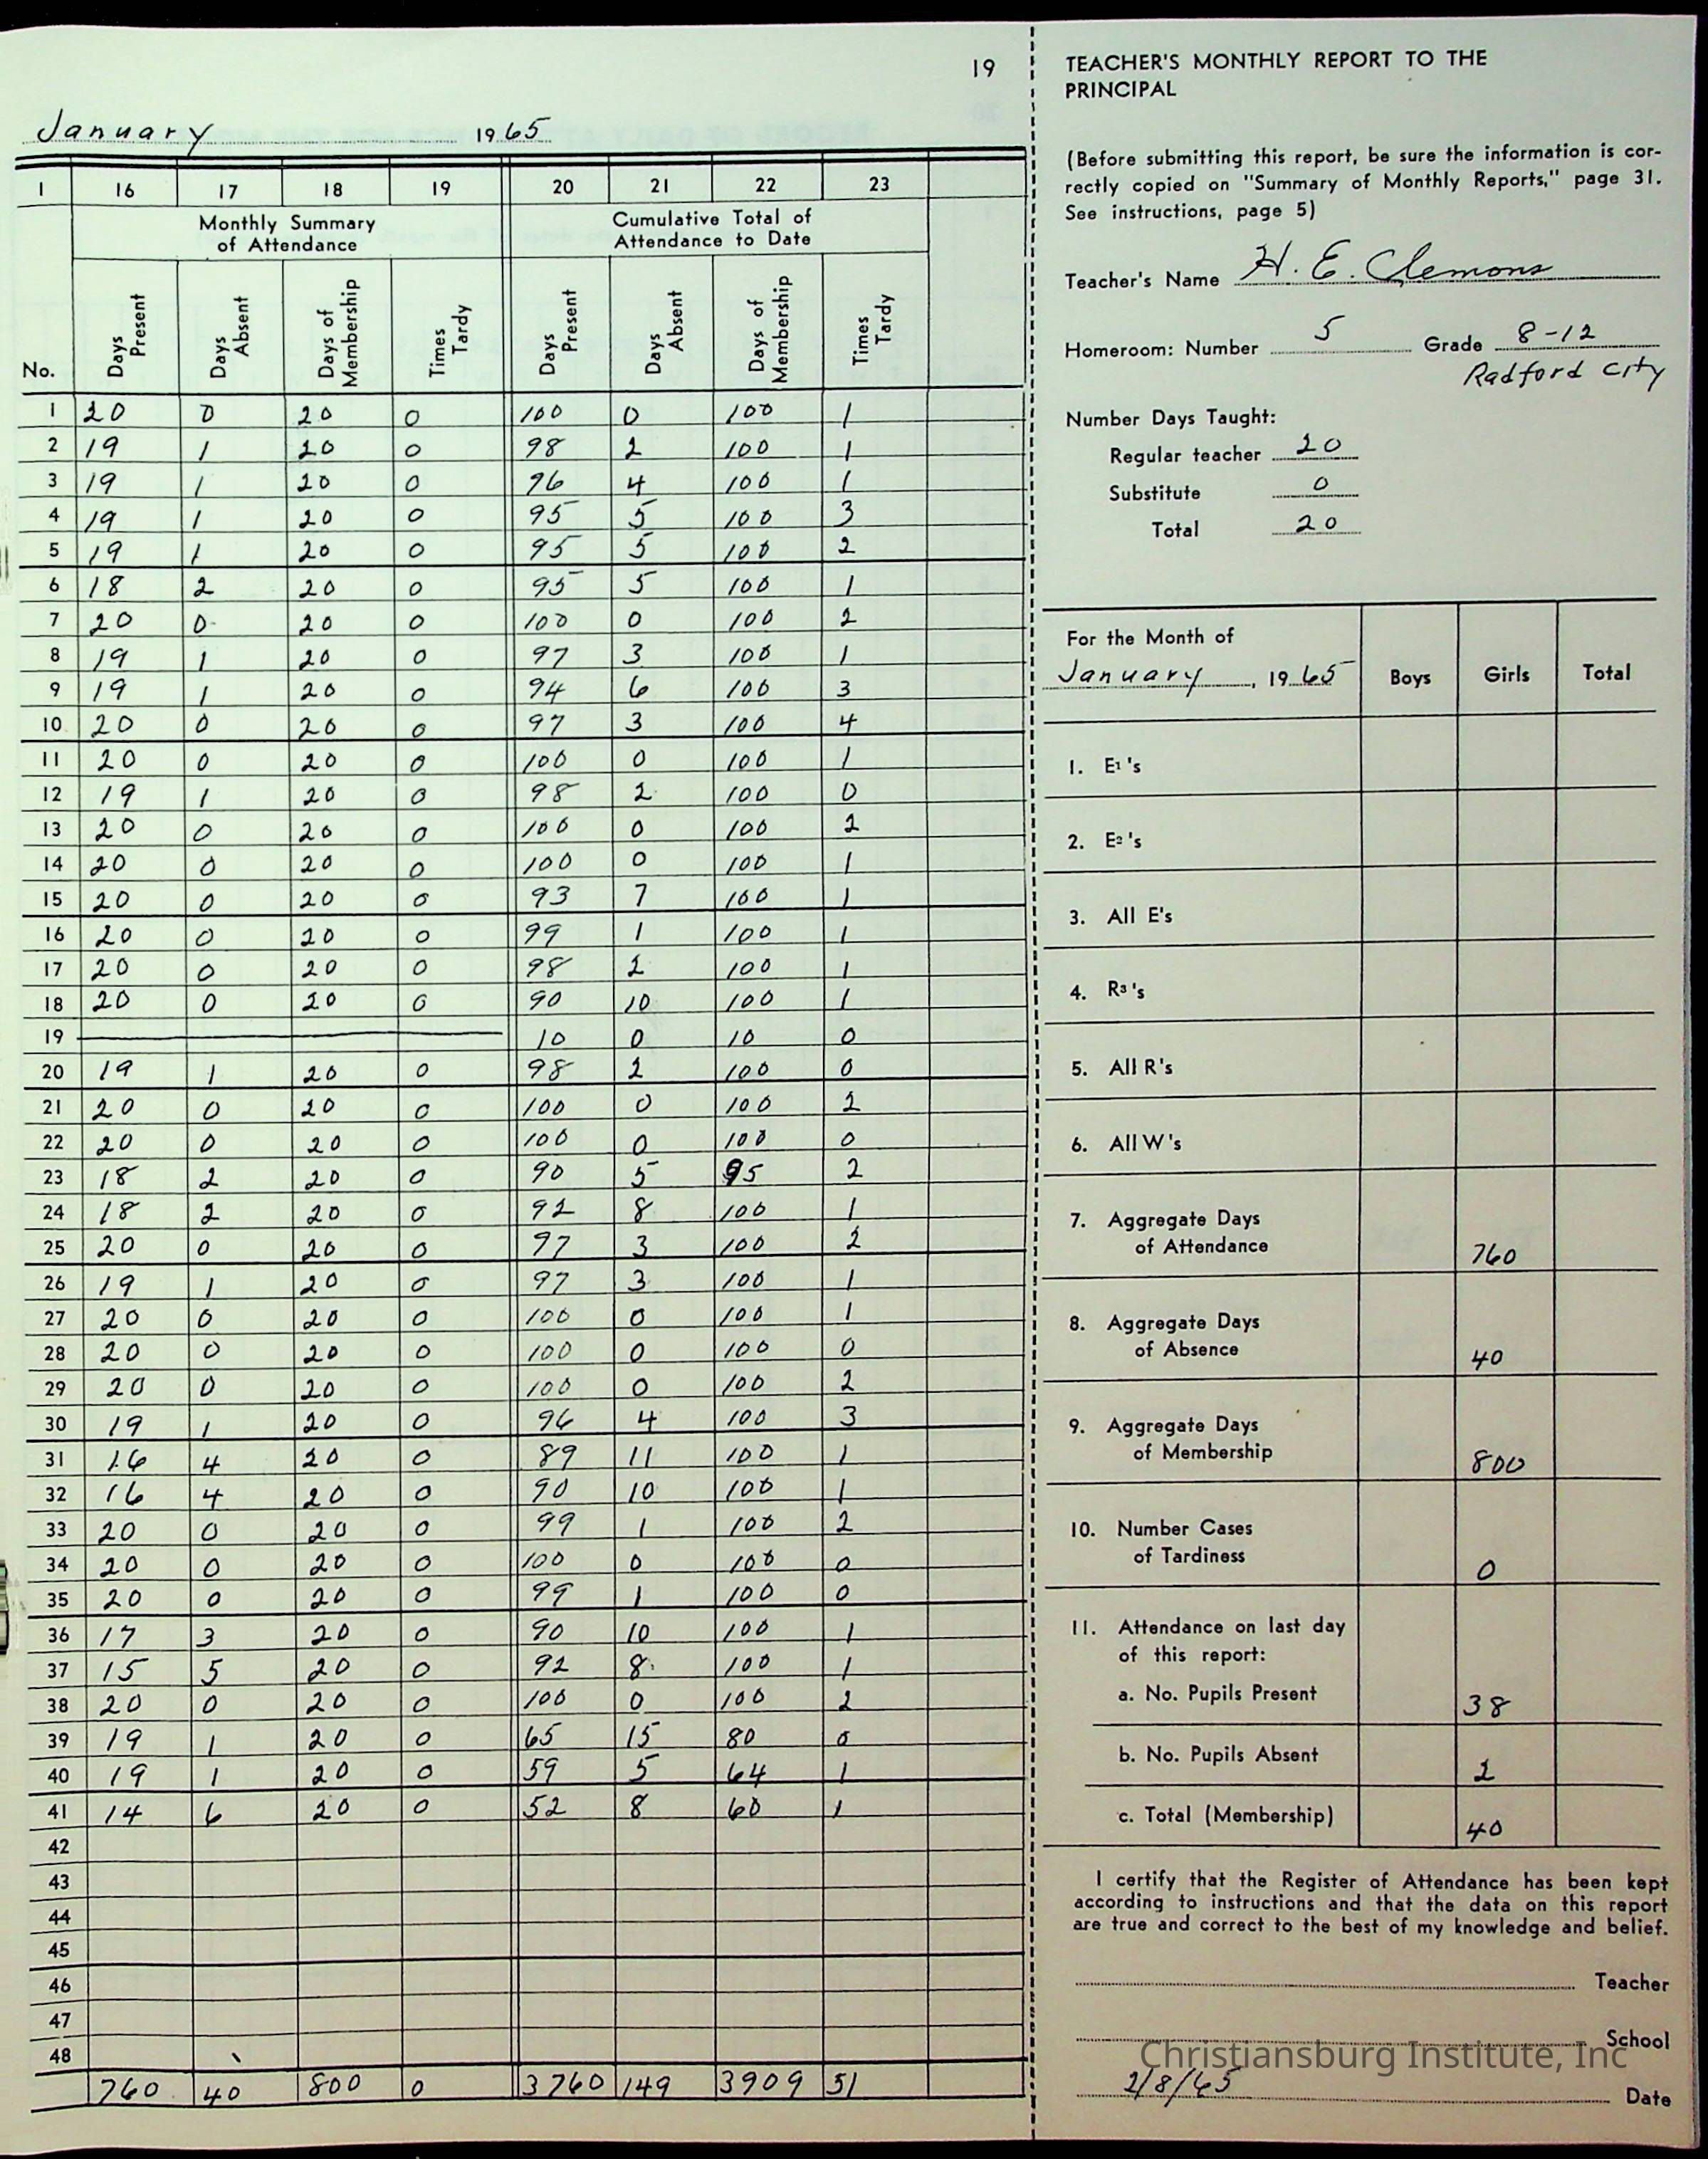 19
January 1965
1 16 17 18 19 20 21 22 23
Monthly Summary of Attendance Cumulative Total of Attendance to Date
No. Days Present Days Absent Days of Membership Times Tardy Days Present Days Absent Days of Membership Times Tardy
1 20 0 20 0 100 0 100 1
2 19 1 20 0 98 2 100 1
3 19 1 20 0 96 4 100 1
4 19 1 20 0 95 5 100 3
5 19 1 20 0 95 5 100 2
6 18 2 20 0 95 5 100 1
7 20 0 20 0 100 0 100 2
8 19 1 20 0 97 3 100 1
9 19 1 20 0 94 6 100 3
10 20 0 20 0 97 3 100 4
11 20 0 20 0 100 0 100 1
12 19 1 20 0 98 2 100 0
13 20 0 20 0 100 0 100 2
14 20 0 20 0 100 0 100 1
15 20 0 20 0 93 7 100 1
16 20 0 20 0 99 1 100 1
17 20 0 20 0 98 2 100 1
18 20 0 20 0 90 10 100 1
19 10 0 10 0
20 19 1 20 0 98 2 100 0
21 20 0 20 0 100 0 100 2
22 20 0 20 0 100 0 100 0
23 18 2 20 0 90 5 95 2
24 18 2 20 0 92 8 100 1
25 20 0 20 0 97 3 100 2
26 19 1 20 0 97 3 100 1
27 20 0 20 0 100 0 100 1
28 20 0 20 0 100 0 100 0
29 20 0 20 0 100 0 100 2
30 19 1 20 0 96 4 100 3
31 16 4 20 0 89 11 100 1
32 16 4 20 0 90 10 100 1
33 20 0 20 0 99 1 100 2
34 20 0 20 0 100 0 100 0
35 20 0 20 0 99 1 100 0
36 17 3 20 0 90 10 100 1
37 15 5 20 0 92 8 100 1
38 20 0 20 0 100 0 100 2
39 19 1 20 0 65 15 80 0
40 19 1 20 0 59 5 64 1
41 14 6 20 0 52 8 60 1
42
43
44
45
46
47
48
760 40 800 0 3760 149 3909 51
TEACHER'S MONTHLY REPORT TO THE
PRINCIPAL
(Before submitting this report, be sure the information is cor-
rectly copied on "Summary of Monthly Reports," page 31.
See instructions, page 5)
Teacher's Name H. E. Clemons
Homeroom: Number 5 Grade 8-12
Radford City
Number Days Taught:
Regular teacher 20
Substitute 0
Total 20
For the Month of
January, 1965 Boys Girls Total
1. E1's
2. E2's
3. All E's
4. R3's
5. All R's
6. All W's
7. Aggregate Days
of Attendance 760
8. Aggregate Days
of Absence 40
9. Aggregate Days
of Membership 800
10. Number Cases
of Tardiness 0
11. Attendance on last day
of this report:
a. No. Pupils Present 38
b. No. Pupils Absent 2
c. Total (Membership) 40
I certify that the Register of Attendance has been kept
according to instructions and that the data on this report
are true and correct to the best of my knowledge and belief.
Teacher
School
Christiansburg Institute, Inc
2/8/65 Date